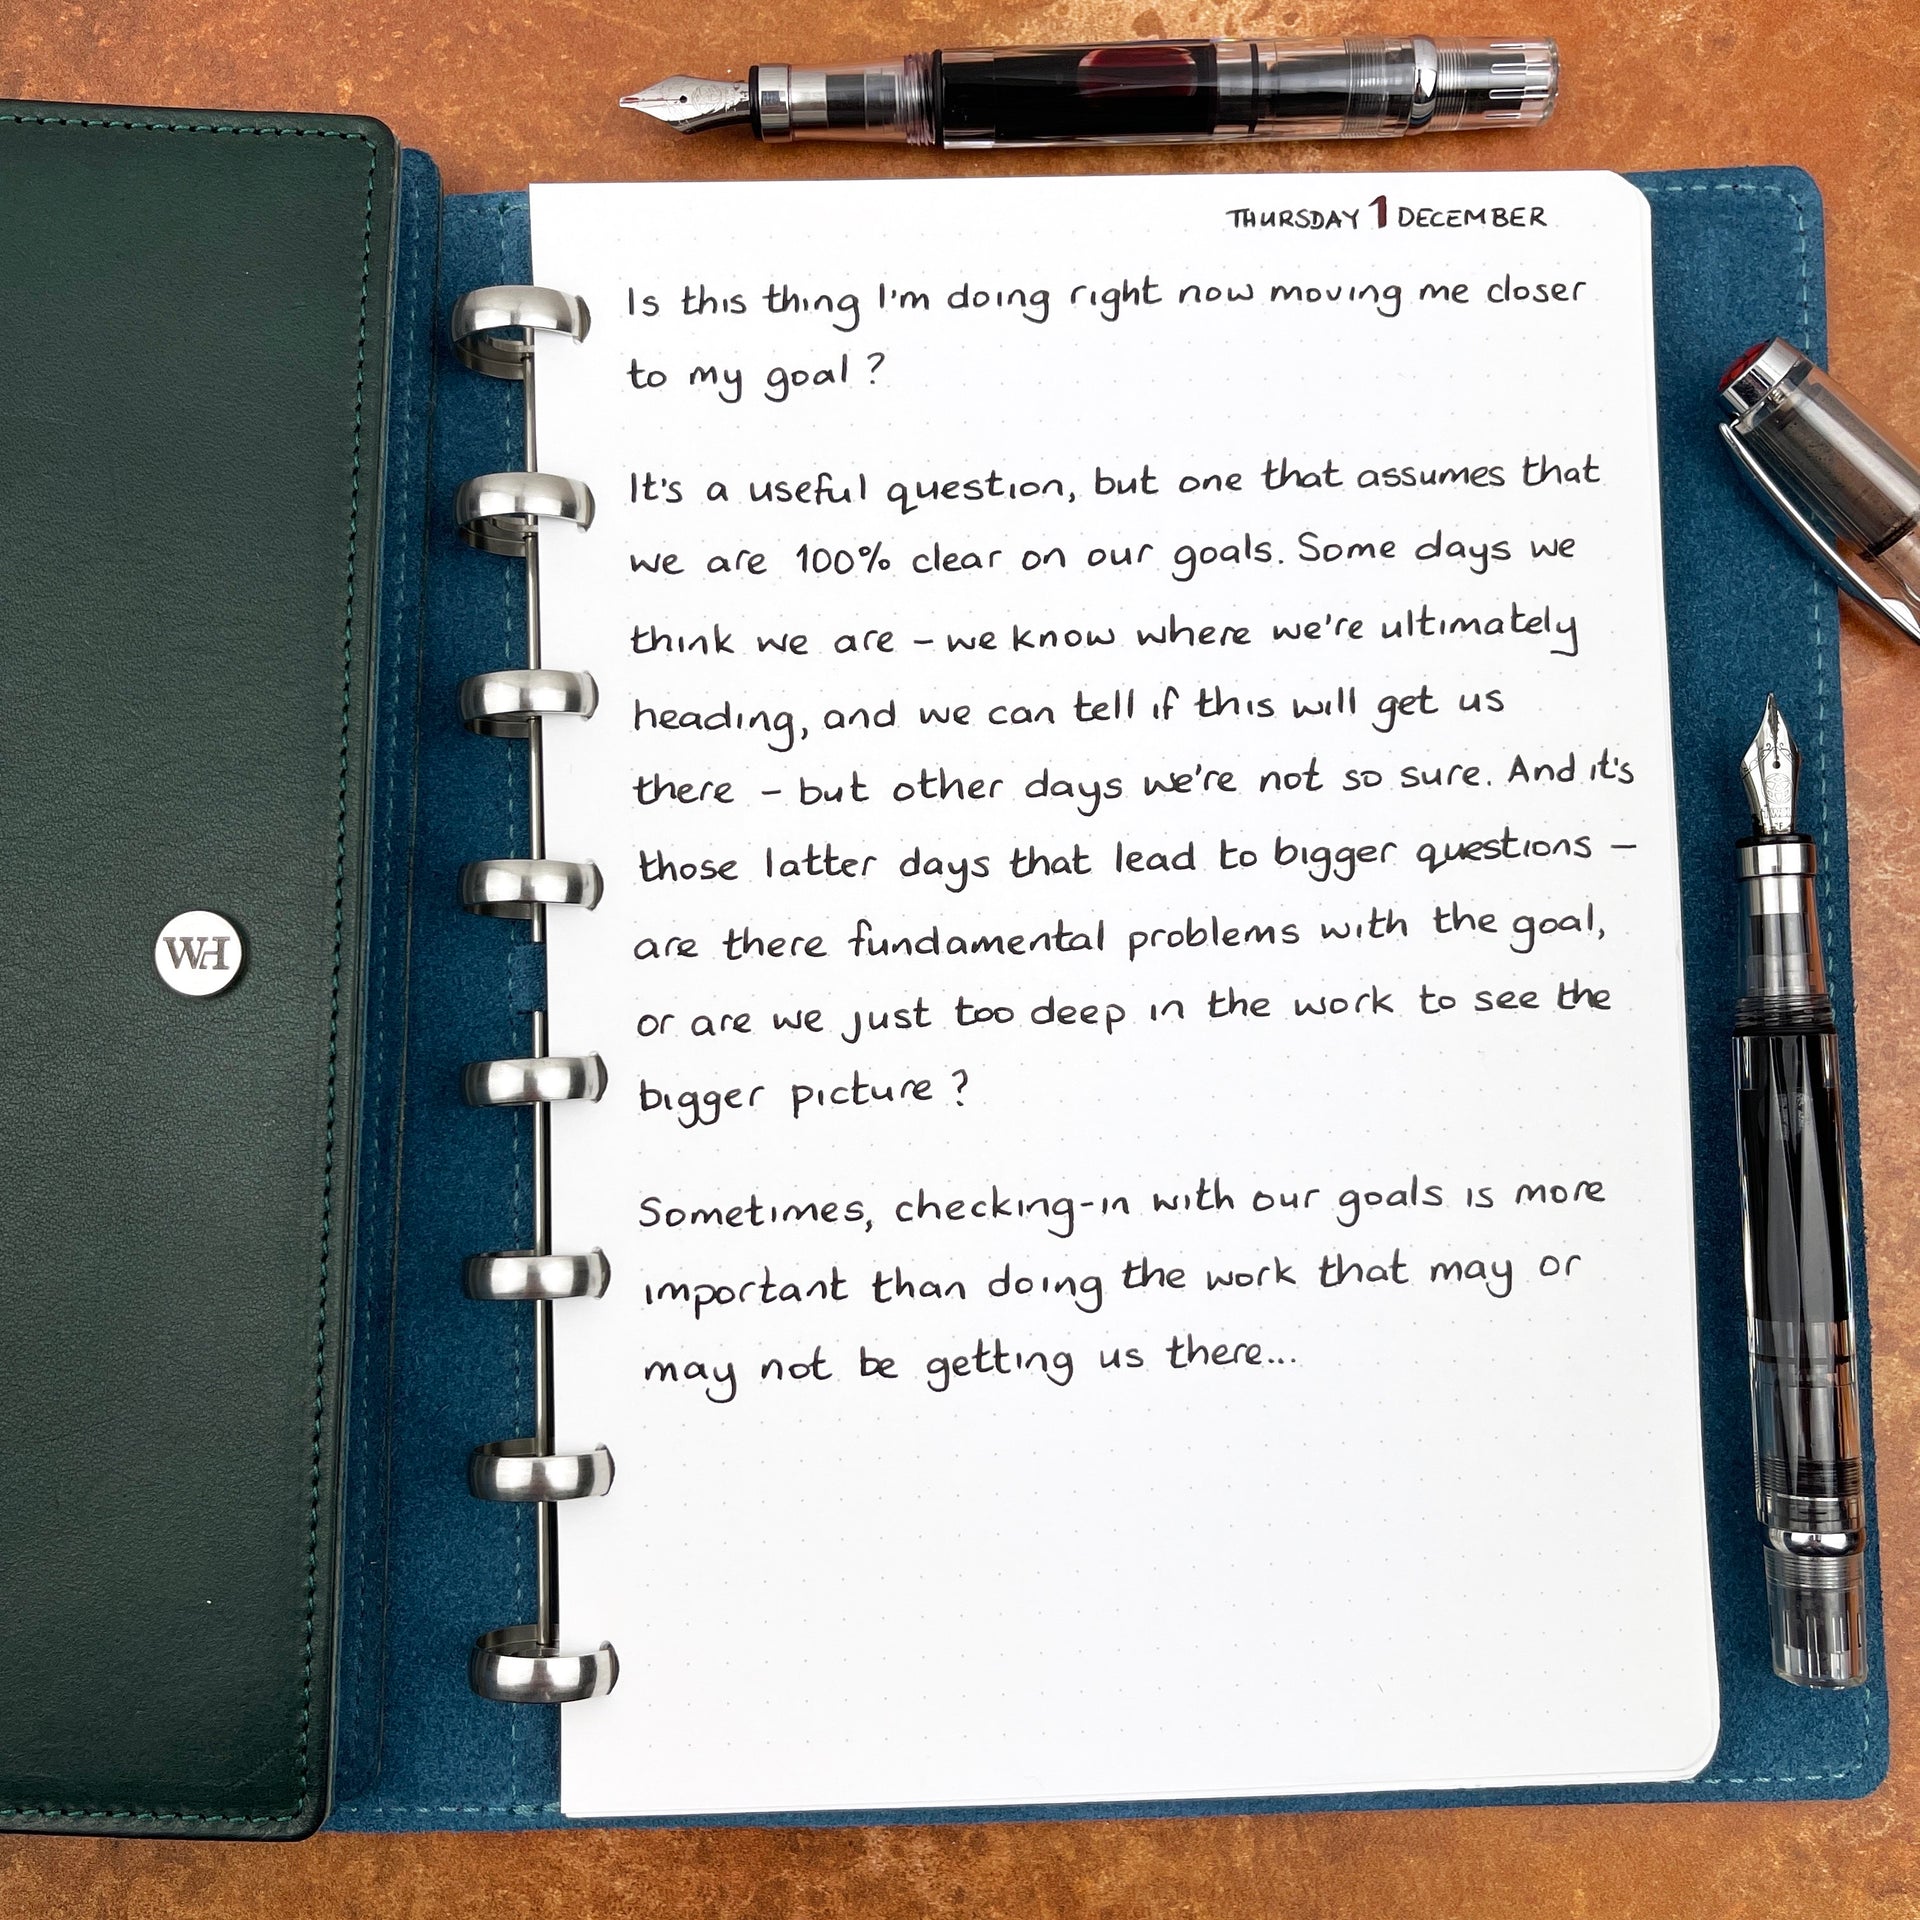 THURSDAY 1 DECEMBER
Is this thing I'm doing right now moving me closer
to my goal?
It's a useful question, but one that assumes that
we are 100% clear on our goals. Some days we
think we are – we know where we're ultimately
heading, and we can tell if this will get us
there – but other days we're not so sure. And it's
those latter days that lead to bigger questions –
are there fundamental problems with the goal,
or are we just too deep in the work to see the
bigger picture?
Sometimes, checking-in with our goals is more
important than doing the work that may or
may not be getting us there...
WH